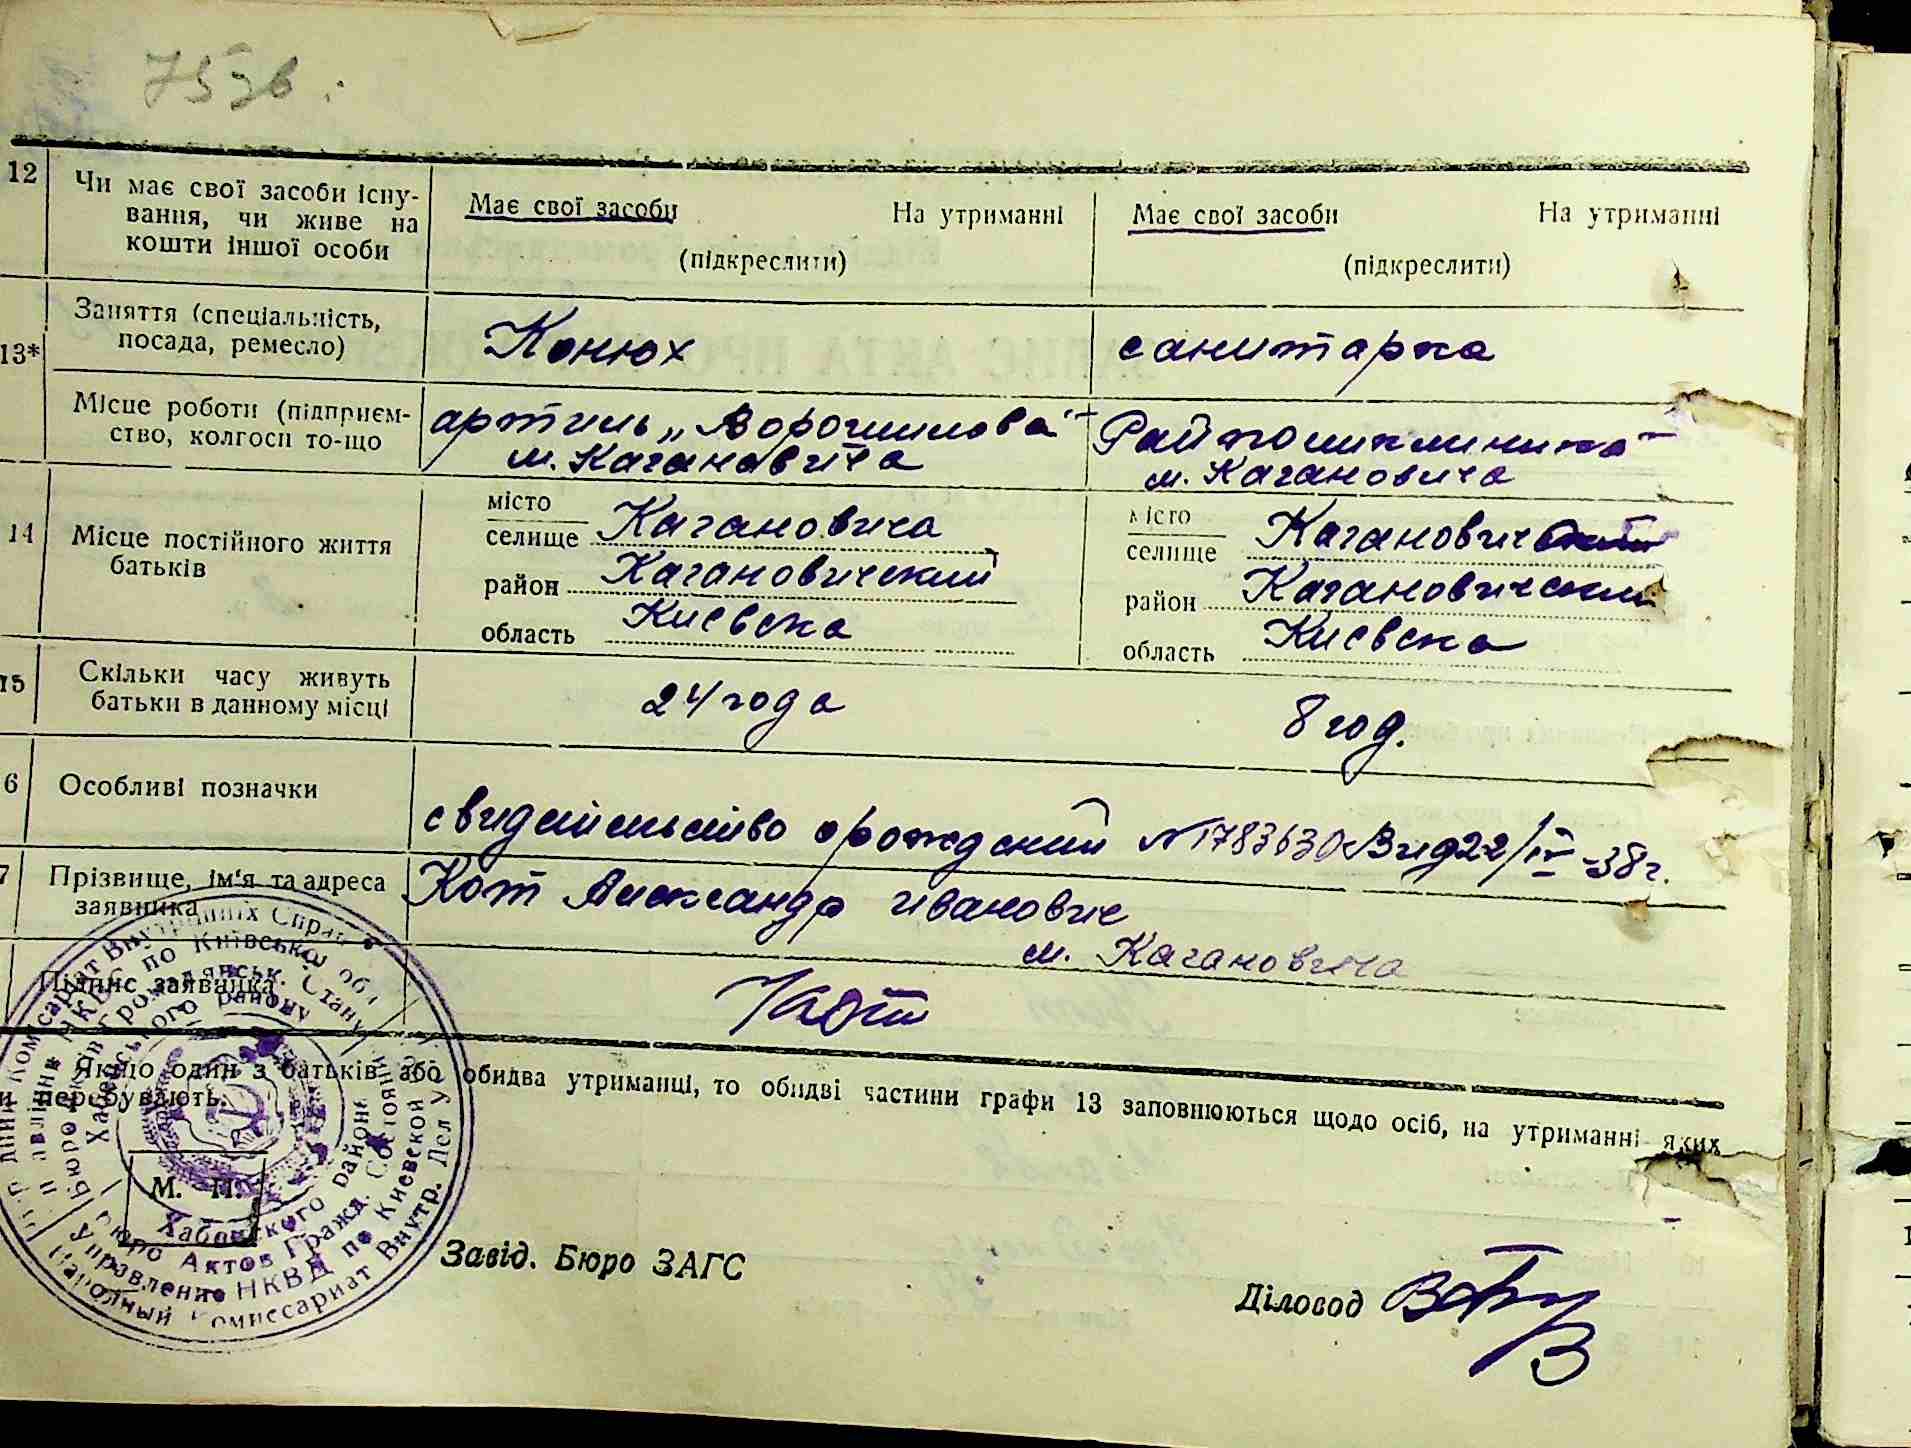 75зв.
12 Чи має свої засоби існу- Має свої засоби На утриманні Має свої засоби На утриманні
вання, чи живе на
кошти іншої особи (підкреслити) (підкреслити)
13* Заняття (спеціальність, Конюх санитарка
посада, ремесло)
Місце роботи (підприєм- артиль „Ворошилова" Райполиклиника
ство, колгосп то-що м. Кагановича м. Кагановича
14 Місце постійного життя місто місто
батьків селище Кагановича селище Кагановича
район Кагановический район Кагановический
область Киевска область Киевска
15 Скільки часу живуть 24 года 8 год.
батьки в данному місці
6 Особливі позначки свидетельство о рождении №1783630 Выд 22/IV-38г.
7 Прізвище, ім'я та адреса Кот Александр Иванович
заявника м. Кагановича
Підпис заявника Кот
Якщо один з батьків або обидва утриманці, то обидві частини графи 13 заповнюються щодо осіб, на утриманні яких
и перебувають.
М. П.
Завід. Бюро ЗАГС
Діловод
Комісаріат Внутрішніх Справ
НКВС по Київській обл
Громадянськ. Стану
району
Хабенского района
Бюро Актов Гражд. Состояния
Управление НКВД по Киевской
Народный Комиссариат Внутр. Дел У